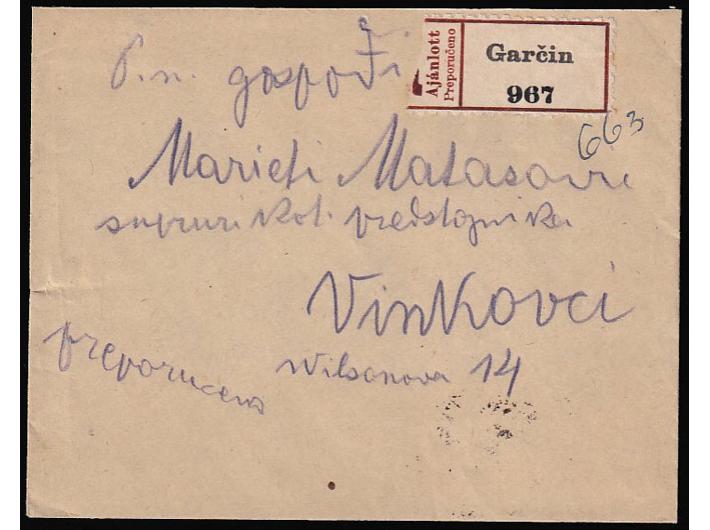 Ajánlott
Preporučeno
Garčin
967
663
P. n. gospođi
Marieti Matasović
supruzi kot. predstojnika
Vinkovci
Wilsonova 14
preporučeno